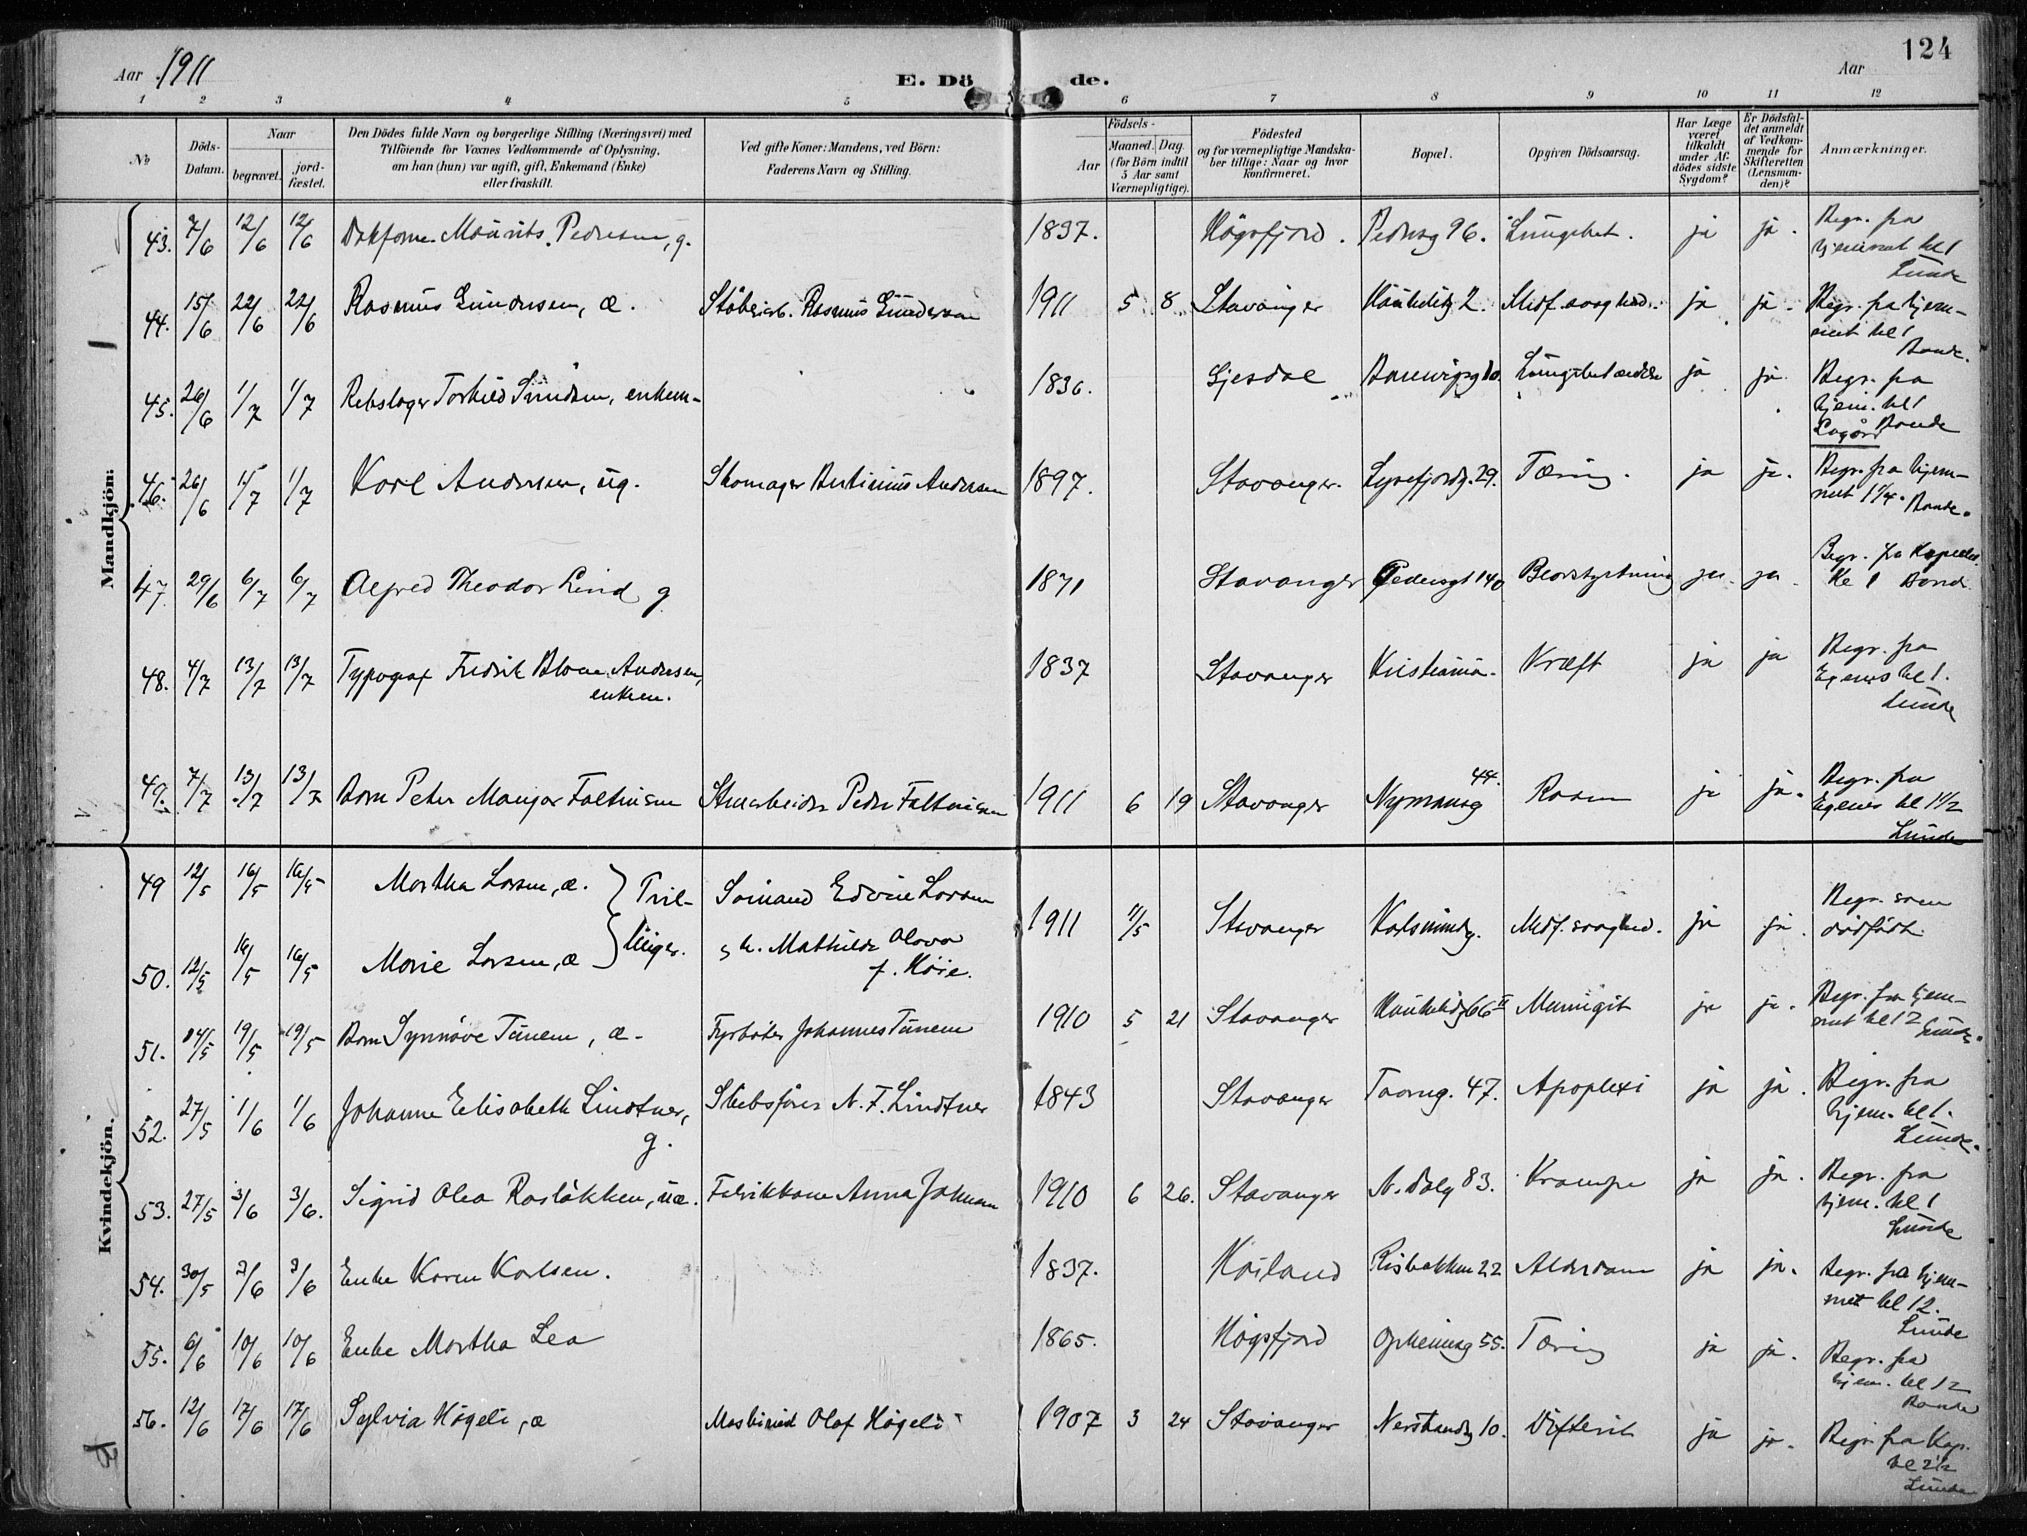 Aar 1911
E. Dö de.
Aar
124
1 2 3 4 5 6 7 8 9 10 11 12
No
Döds-
Datum.
Naar
begravet.
jord-
fæstet.
Den Dödes fulde Navn og borgerlige Stilling (Næringsvei) med
Tilföiende for Voxnes Vedkommende af Oplysning,
om han (hun) var ugift, gift, Enkemand (Enke)
eller fraskilt.
Ved gifte Koner: Mandens, ved Börn:
Faderens Navn og Stilling.
Födsels-
Aar
Maaned. Dag.
(for Börn indtil
5 Aar samt
Værnepligtige).
Födested
og for værnepligtige Mandska-
ber tillige: Naar og hvor
konfirmeret.
Bopæl.
Opgiven Dödsaarsag.
Har Læge
været
tilkaldt
under Af-
dödes sidste
Sygdom?
Er Dödsfal-
det anmeldt
af Vedkom-
mende for
Skifteretten
(Lensman-
den)?
Anmærkninger.
Mandkjön:
43. 7/6 12/6 12/6 Maurits Pedersen, g. 1837. Høgsfjord. Pedersg 96. ja ja. Begr. fra
hjemmet kl 1
Lunde
44. 15/6 22/6 22/6 Rasmus Gundersen, æ. Støbeiarb. Rasmus Gundersen 1911 5 8 Stavanger 2. Medf. svaghed. ja ja. Begr. fra hjem-
met kl 1
Bande.
45. 26/6 1/7 1/7 Rebslager Torkild enkem- 1836. Gjesdal ja ja. Begr. fra
hjem. kl 1
Bande
Lagård
46. 26/6 1/7 1/7 Karl Andersen, ug. Skomager Andersen 1897. Stavanger. Lysefjordg. 29. Tæring. ja ja. Begr. fra hjem-
met 1 1/4. Bande.
47. 29/6 6/7 6/7 Alfred Theodor Lind g 1871 Stavanger Pedersgt 140 ja. ja. Begr. fra Kapellet
kl 1 Bande
48. 4/7 13/7 13/7 Typograf Fredrik Blom Andersen,
enkem. 1837 Stavanger Kristiania. Kræft ja ja Begr. fra
Egenes kl 1.
Lunde
49. 7/7 13/7 13/7 Barn Peter Faltinsen Peder Faltinsen 1911 6 19 Stavanger Nymansg 44. ja ja. Begr. fra
Egenes kl 1 1/2
Lunde
Kvindekjön.
49 12/5 16/5 16/5 Martha Larsen, æ. } Tvil- Sømand Edvin Larsen 1911 11/5 Stavanger Karlsmindeg. Medf. svaghed. ja ja. Begr. som
dødfødt.
50. 12/5 16/5 16/5 Marie Larsen, æ linger. h. Mathilde Olava
f. Høie.
51. 14/5 19/5 19/5 Barn Synnøve Tunem, æ. Fyrbøter Johannes Tunem 1910 5 21 Stavanger 66 II Meningit ja ja. Begr. fra hjem-
met kl 12 Lunde.
52. 27/5 1/6 1/6 Johanne Elisabeth Lindtner,
g. Skibsfører N. F. Lindtner 1843 Stavanger 47. Apoplexi ja ja. Begr. fra
hjem. kl 1.
Lunde.
53. 27/5 3/6 3/6. Sigrid Olea uæ. Fabrikkone Anna Johnsen 1910 6 26. Stavanger N. Dalg 83. Krampe ja ja. Begr. fra
hjem. kl 1
Lunde
54. 30/5 3/6 3/6 Enke Karen Karlsen. 1837. Høiland Risbakken 22 Alderdom ja ja. Begr. fra hjem-
met kl 12.
Lunde
55. 6/6 10/6 10/6 Enke Martha Lea 1865. Høgsfjord Opheimsg 55. Tæring ja ja. Begr. fra
hjem. kl 12
Bande
56. 12/6 17/6 17/6 Sylvia Høgeli, æ Maskinist Olaf Høgeli 1907 3 24 Stavanger Nerstrandg 10. Difterit ja ja. Begr. fra Kap.
kl 2 1/2
Lunde